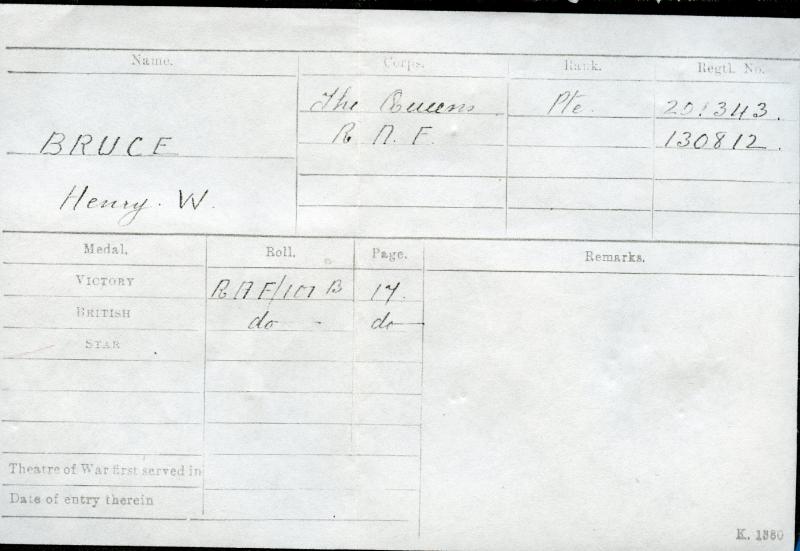 Name. Corps. Rank. Regtl. No.
The Queens Pte. 201343.
BRUCE R A F. 130812.
Henry. W.
Medal. Roll. Page. Remarks.
VICTORY RAF/101 B 17.
BRITISH do - do
STAR
Theatre of War first served in
Date of entry therein
K. 1380